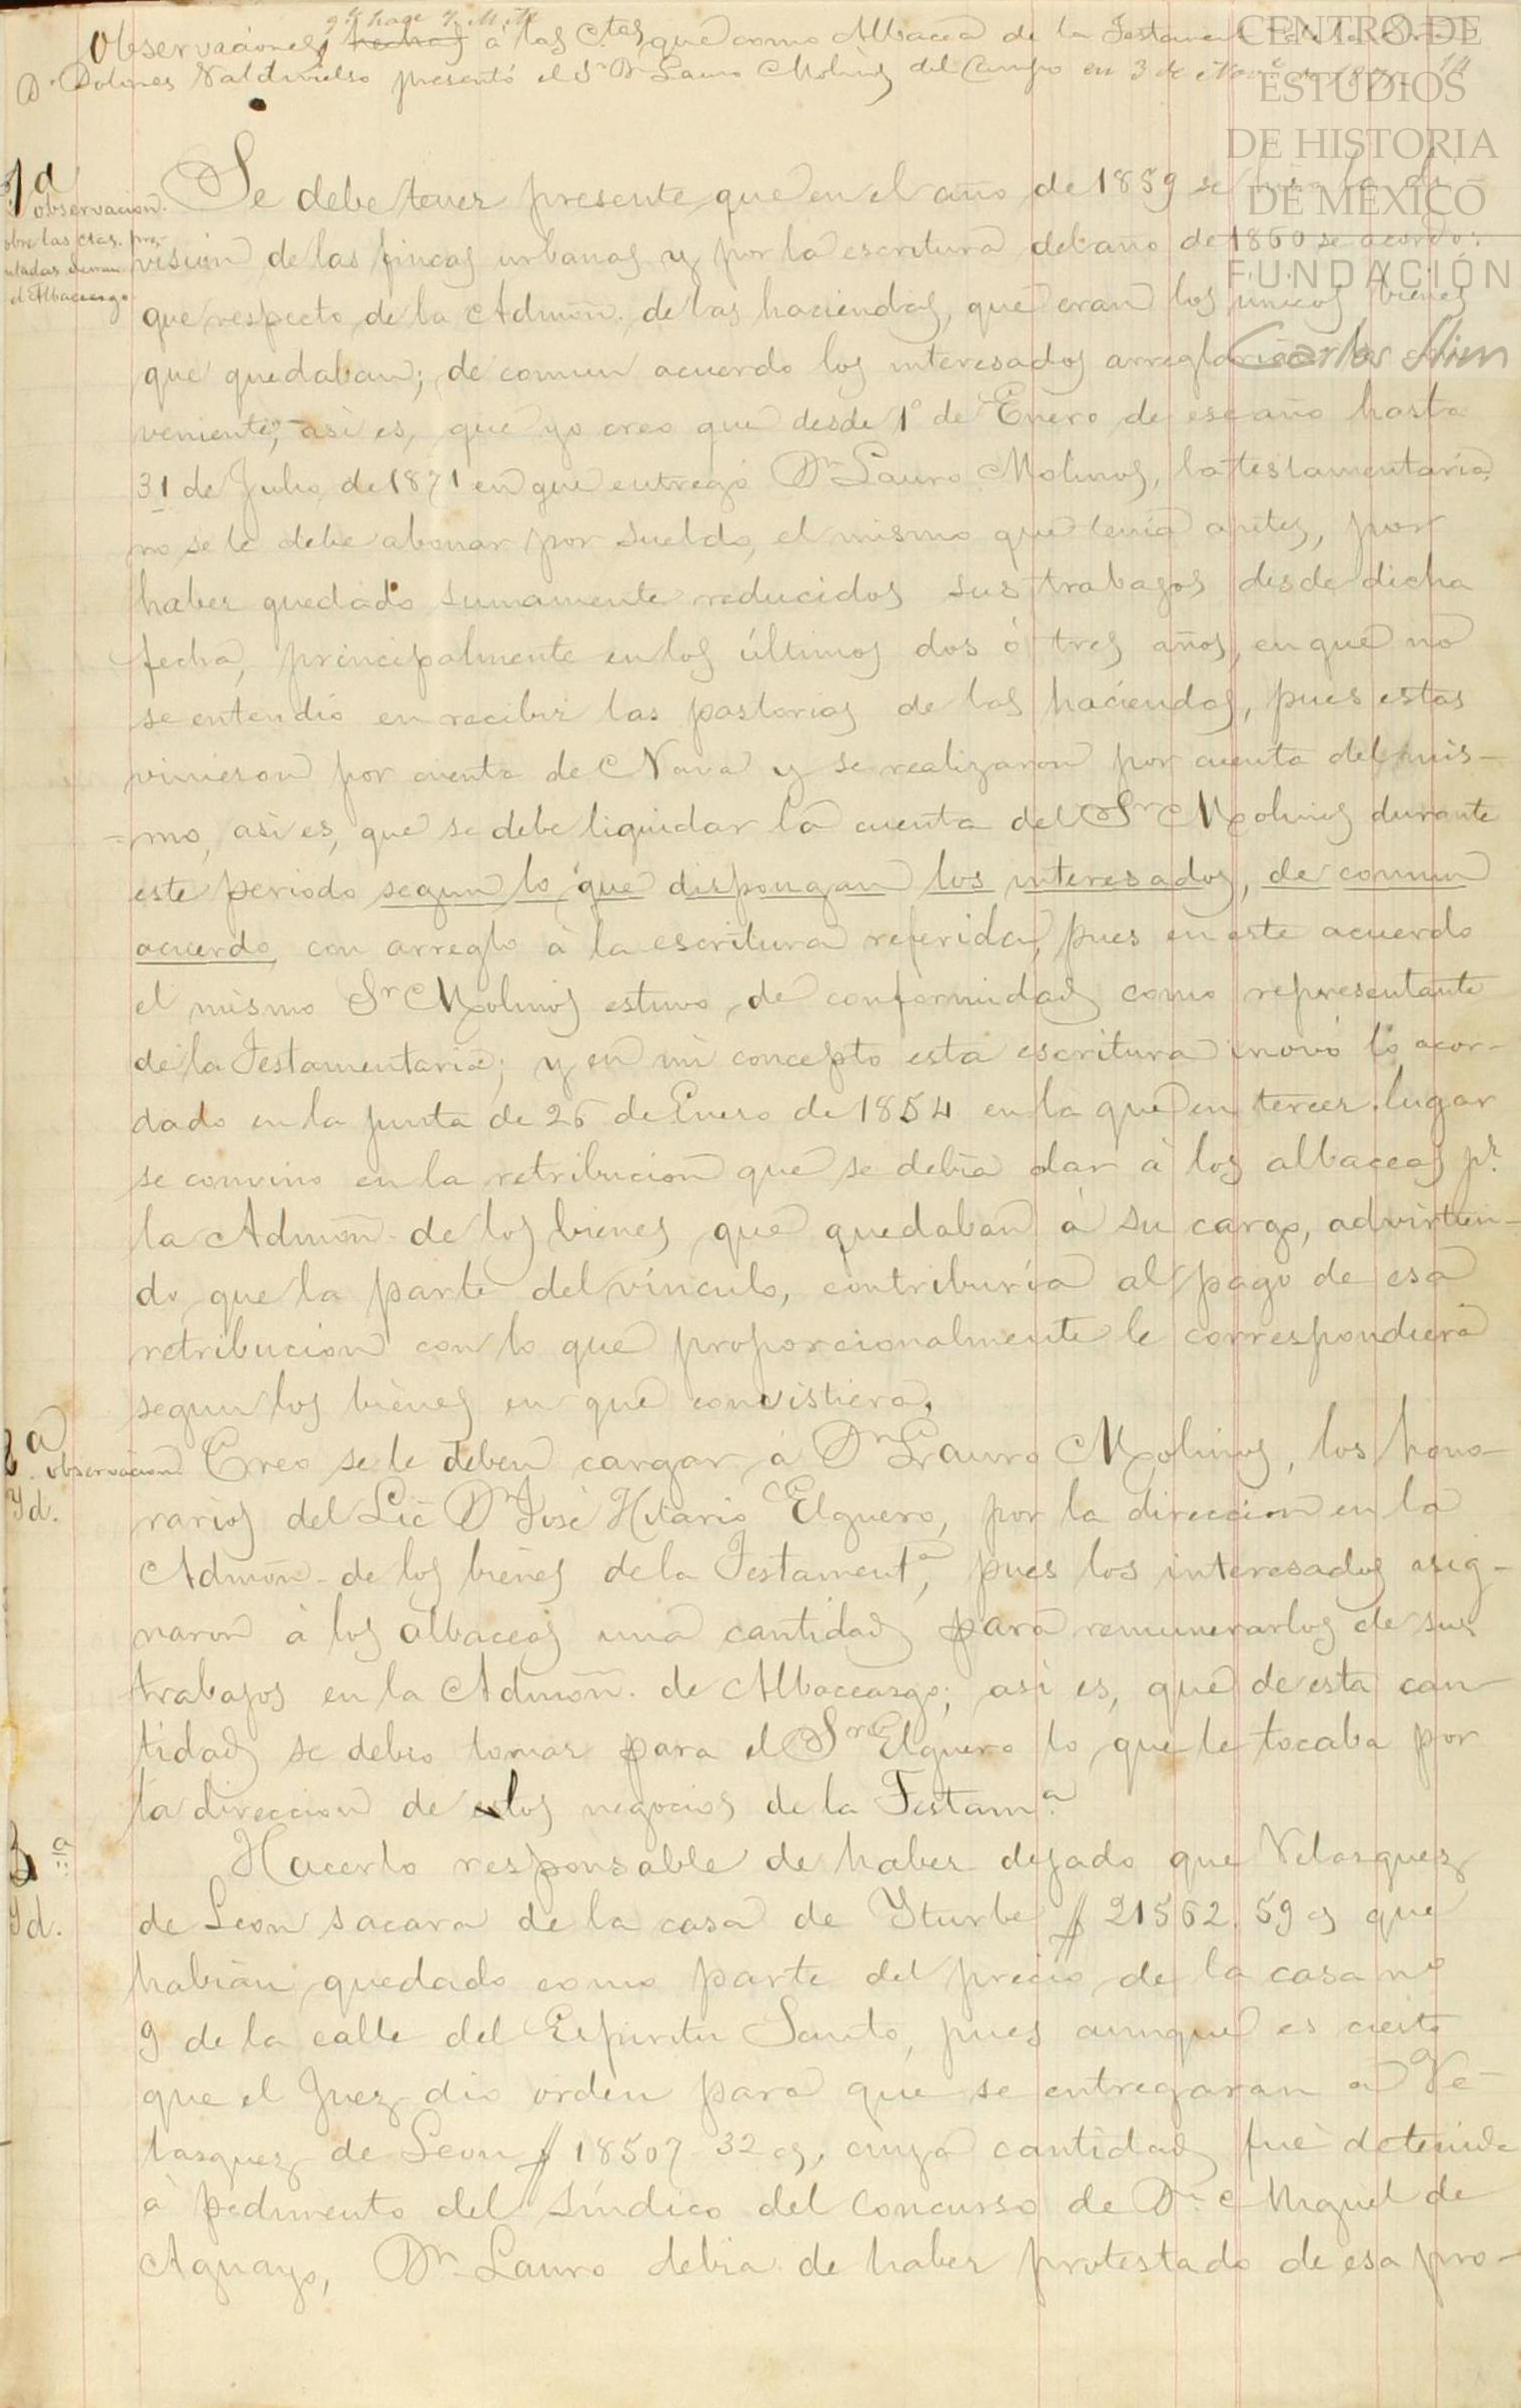 qe. hace
Observaciones hechas á las C.tas que como Albacea de la
Da. Dolores Valdivielso presentó el Sr. Dn Lauro Molinos del Campo en 3 de
CENTRO DE
ESTUDIOS
DE HISTORIA
DE MÉXICO
FUNDACIÓN
Carlos Slim
1a
observacion.
sobre las ctas. pre-
el Albaceazgo
Se debe tener presente que en el año de 1859 se
vision de las fincas urbanas y por la escritura del año de 1860 se acordo:
que respecto de la Admōn. de las haciendas, que eran los unicos bienes
que quedaban; de comun acuerdo los interesados
veniente; asi es, que yo creo que desde 1º de Enero de ese año hasta
31 de Julio de 1871 en que entregó Dn Lauro Molinos, la testamentaria,
no se le debe abonar por sueldo, el mismo que tenia antes, por
haber quedado sumamente reducidos sus trabajos desde dicha
fecha, principalmente en los últimos dos ó tres años, en que no
se entendió en recibir las pastorias de las haciendas, pues estas
vinieron por cuenta de Nava y se realizaron por cuenta del mis-
=mo, asi es, que se debe liquidar la cuenta del Sr Molinos durante
este periodo segun lo que dispongan los interesados, de comun
acuerdo, con arreglo á la escritura referida, pues en este acuerdo
el mismo Sr Molinos estuvo de conformidad como representante
de la Testamentaria; y en mi concepto esta escritura inovó lo acor-
dado en la junta de 26 de Enero de 1854 en la que en tercer lugar
se convino en la retribucion que se debia dar á los albaceas pr.
la Admōn. de los bienes que quedaban á su cargo, advirtien-
do que la parte del vínculo, contriburía al pago de esa
retribucion con lo que proporcionalmente le correspondiera
segun los bienes en que concistiera.
2a
observacion
Yd.
Creo se le deben cargar á Dn Lauro Molinos, los hono-
rarios del Lic Dn José Hilario Elguero, por la direccion en la
Admōn. de los bienes de la Testamenta, pues los interesados asig-
naron á los albaceas una cantidad para remunerarlos de sus
trabajos en la Admōn. de Albaceazgo; asi es, que de esta can-
tidad se debio tomar para el Sr Elguero lo que le tocaba por
la direccion de los negocios de la Testama.
3a
Yd.
Hacerlo responsable de haber dejado que Velasquez
de Leon sacara de la casa de Yturbe $ 21562. 59 cs que
habian quedado como parte del precio de la casa no
9 de la calle del Espiritu Santo, pues aunque es cierto
que el Juez dio orden para que se entregaran a Ve-
lasquez de Leon $ 18507 32 cs, cuya cantidad fué detenida
a pedimento del síndico del concurso de Dn. Miguel de
Aguayo, Dn Lauro debia de haber protestado de esa pro-